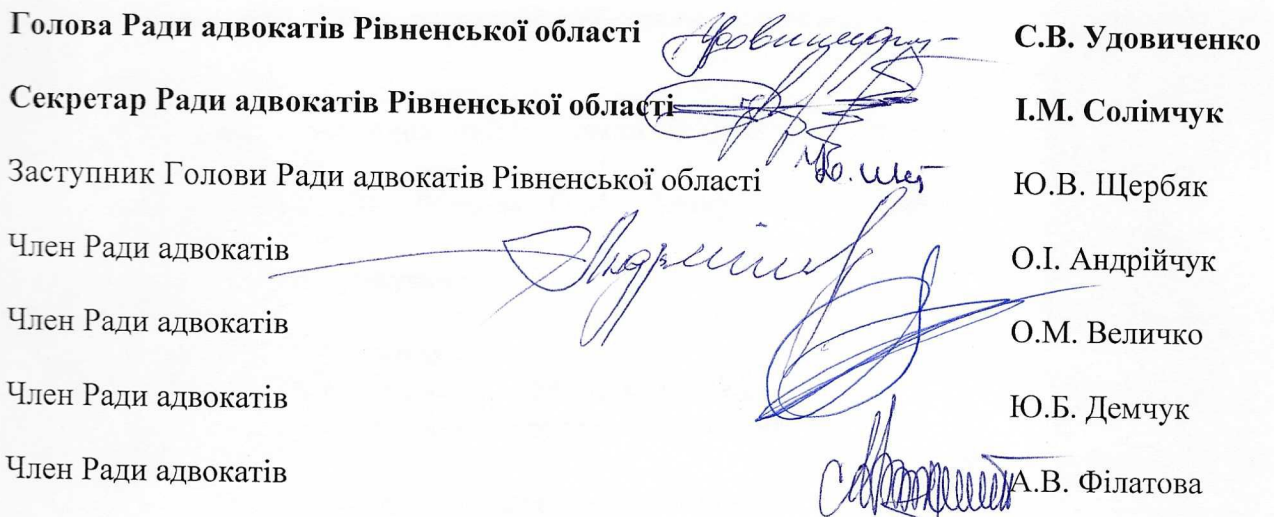 Голова Ради адвокатів Рівненської області С.В. Удовиченко
Секретар Ради адвокатів Рівненської області І.М. Солімчук
Заступник Голови Ради адвокатів Рівненської області Ю.В. Щербяк
Член Ради адвокатів О.І. Андрійчук
Член Ради адвокатів О.М. Величко
Член Ради адвокатів Ю.Б. Демчук
Член Ради адвокатів А.В. Філатова